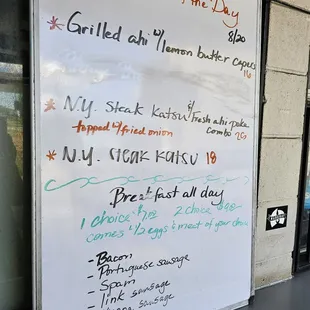 the Day
8/20
* Grilled ahi w/ lemon butter capers
16
* N.Y. Steak Katsu & Fresh ahi poke
topped w/ fried onion combo
* N.Y. Steak Katsu 18
Breakfast all day
1 choice 2 choice
comes w/ 2 eggs & meat of your choice
- Bacon
- Portuguese sausage
- Spam
- link sausage
sausage